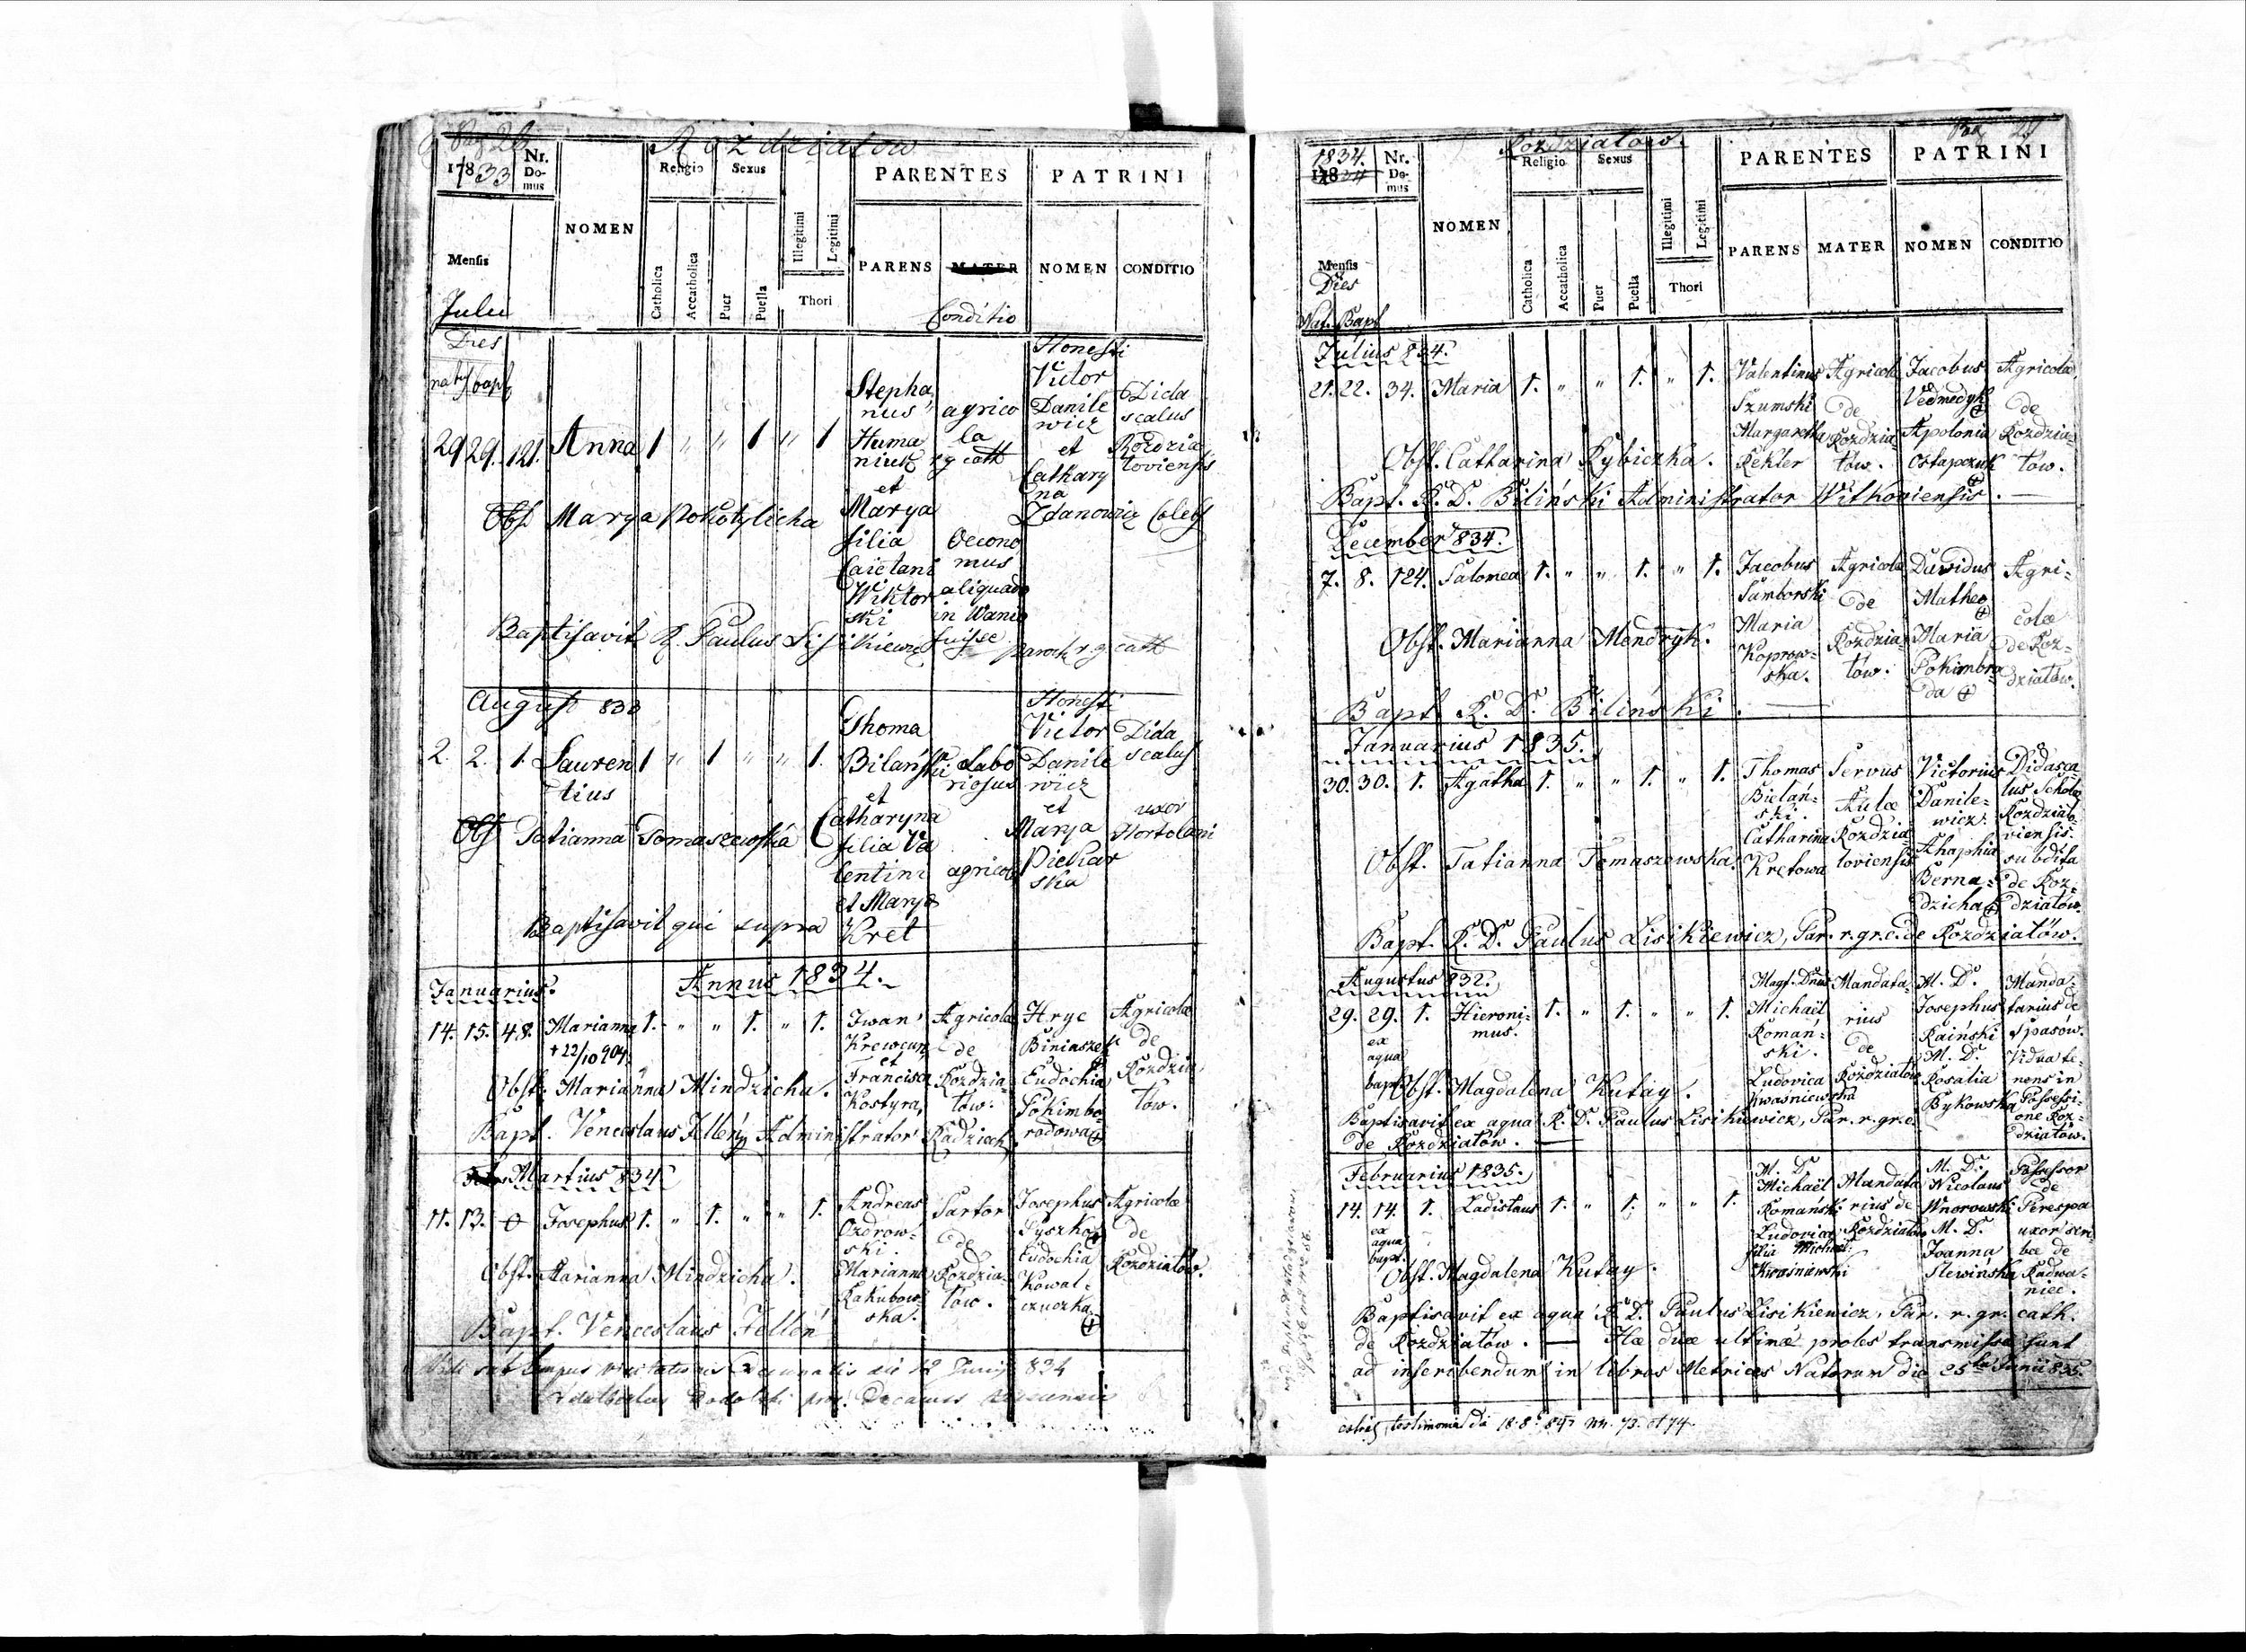 Pag 26
Rozdziatow
1783 33
Nr. Domus
NOMEN
Religio
Sexus
PARENTES
PATRINI
Catholica
Accatholica
Puer
Puella
Illegitimi
Legitimi
Thori
PARENS
MATER
NOMEN
CONDITIO
Mensis
Julii
Conditio
Dies
natus bapt
29 29. 121. Anna 1 " " 1 " 1
Stepha
nus
Huma
niuk
et
Marya
filia
Caietani
Wiktor
ski
agrico
la
r g cath
Oecono
mus
aliquado
in Wanio
fuisse
Honesti
Victor
Danile
wicz
et
Cathary
na
Zdanowicz
Dida
scalus
Rozdzia
toviensis
Coleb
Obst Marya Pokotylicha
Baptisavit R. Paulus Lisikiewicz Paroch r g cath
August 833
2. 2. 1. Lauren
tius
1 " 1 " " 1.
Thoma
Bilański
et
Catharyna
filia Va
lentini
et Marya
Kret
Labo
riosus
agricola
Honesti
Victor
Danile
wicz
et
Marya
Piekar
ska
Dida
scalus
uxor
Hortolani
Obst Tatianna Tomaszewska
Baptisavit qui supra
Annus 1834.
Januarius.
14. 15. 48. Marianna 1. " " 1. " 1.
+ 22/10 904.
Iwan
Krewcun
et
Francisca
Kostyra,
Agricola
de
Rozdzia
tów.
Hryc
Biniaszek
Eudochia
Pokimbo
rodowa
Agricolæ
de
Rozdzia
tów.
Obst. Marianna Mindzicha.
Bapt. Venceslaus Jellén Administrator Radziech.
Martius 834
11. 13. 0 Josephus 1. " 1. " " 1.
Andreas
Ozdrow=
ski.
Marianna
Kakubow
ska.
Sartor
de
Rozdzia=
tów.
Josephus
Pyszko
Eudochia
Kowal=
czuczka.
Agricolæ
de
Rozdziatów.
Obst. Marianna Mindzicha.
Bapt. Venceslaus Jellén
Vidi sub tempus visitationis Decanalis die 12 Junij 834
Pag 27
Rozdziatów.
1834.
Nr. Domus
NOMEN
Religio
Sexus
PARENTES
PATRINI
Catholica
Accatholica
Puer
Puella
Illegitimi
Legitimi
Thori
PARENS
MATER
NOMEN
CONDITIO
Mensis
Dies
Nat. Bapt
Julius 834.
21. 22. 34. Maria 1. " " 1. " 1.
Valentinus
Szumski
Margaretha
Rekler
Agricola
de
Rozdzia
tów.
Jacobus
Vedmedyk
Apolonia
Ostapczuk
Agricolæ,
de
Rozdzia=
tów.
Obst. Catharina Rybiczka.
Bapt. R. D. Biliński Administrator Witkoviensis.
December 834.
7. 8. 124. Salomea 1. " " 1. " 1.
Jacobus
Samborski
Maria
Koprow=
ska.
Agricola
de
Rozdzia=
tów.
Davidus
Matheo
Maria
Pokimbro
da
Agri=
colæ
de Roz=
dziatów.
Obst. Marianna Mendryk.
Bapt. R. D. Biliński.
Januarius 1835.
30. 30. 1. Agatha 1. " " 1. " 1.
Thomas
Bielań=
ski.
Catharina
Kretowa
Servus
Aulæ
Rozdzia
toviensis
Victorius
Danile=
wicz.
Ahaphia
Berna=
dzicha
Didasca
lus Scholæ
Rozdziato
viensis.
subdita
de Roz=
dziatów.
Obst. Tatianna Tomaszewska.
Bapt. R. D. Paulus Lisikiewicz, Par. r. gr. c. de Rozdziatów.
Augustus 832.
29. 29. 1. Hieroni=
mus.
1. " 1. " " 1.
ex
aqua
bapt.
Magf. Dnus
Michaël
Romań=
ski.
Ludovica
Kwasniewska
Mandata=
rius
de
Rozdziatów
M. D.
Josephus
Raiński
M. D.
Rosalia
Bykowska
Manda=
tarius de
Spasów.
Vidua te=
nens in
Possessi=
one Roz=
dziatów.
Obst. Magdalena Kutay.
Baptisavit ex aqua R. D. Paulus Lisikiewicz, Par. r. gr. c.
de Rozdziatów.
Februarius 1835.
14. 14. 1. Ladislaus 1. " 1. " " 1.
ex
aqua
bapt.
M. D.
Michaël
Romański
Ludovica
filia Michael:
Kwaśniewski
Mandata
rius de
Rozdziatów
M. D.
Nicolaus
Wnorowski
M. D.
Joanna
Slewińska
Possessor
de
Perespa
uxor scri=
bæ de
Radwa=
niec.
Obst. Magdalena Kutay.
Baptisavit ex aqua R. D. Paulus Lisikiewicz, Par. r. gr. cath.
de Rozdziatów. — Hæ duæ ultimæ proles transmissæ sunt
ad inscribendum in libros Metrices Natorum die 25ta Junii 835.
testimonia